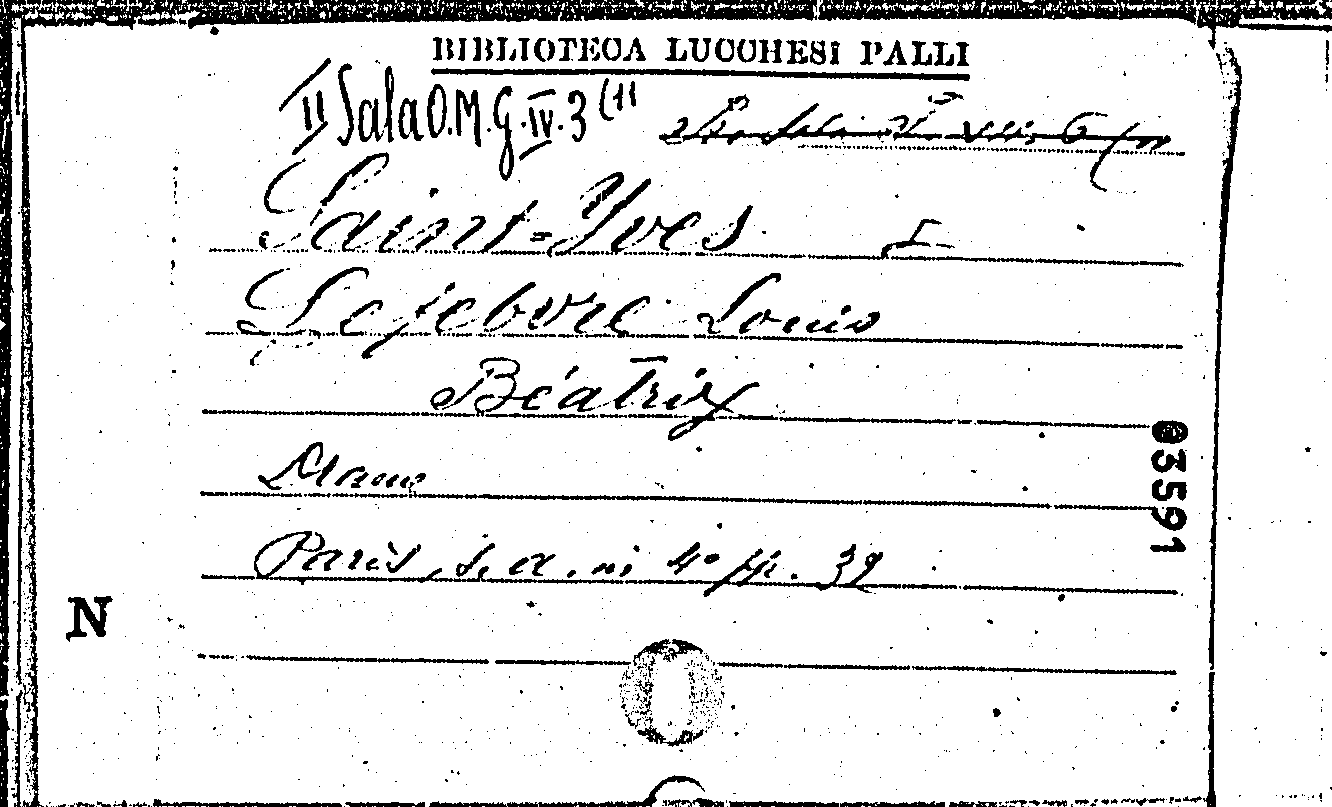 BIBLIOTECA LUCCHESI PALLI
II Sala O.M.G.IV.3 (11
Saint-Yves
Lefebvre Louis
Béatrix
Drame
Paris, s. a. in 4° pp. 39
03591
N